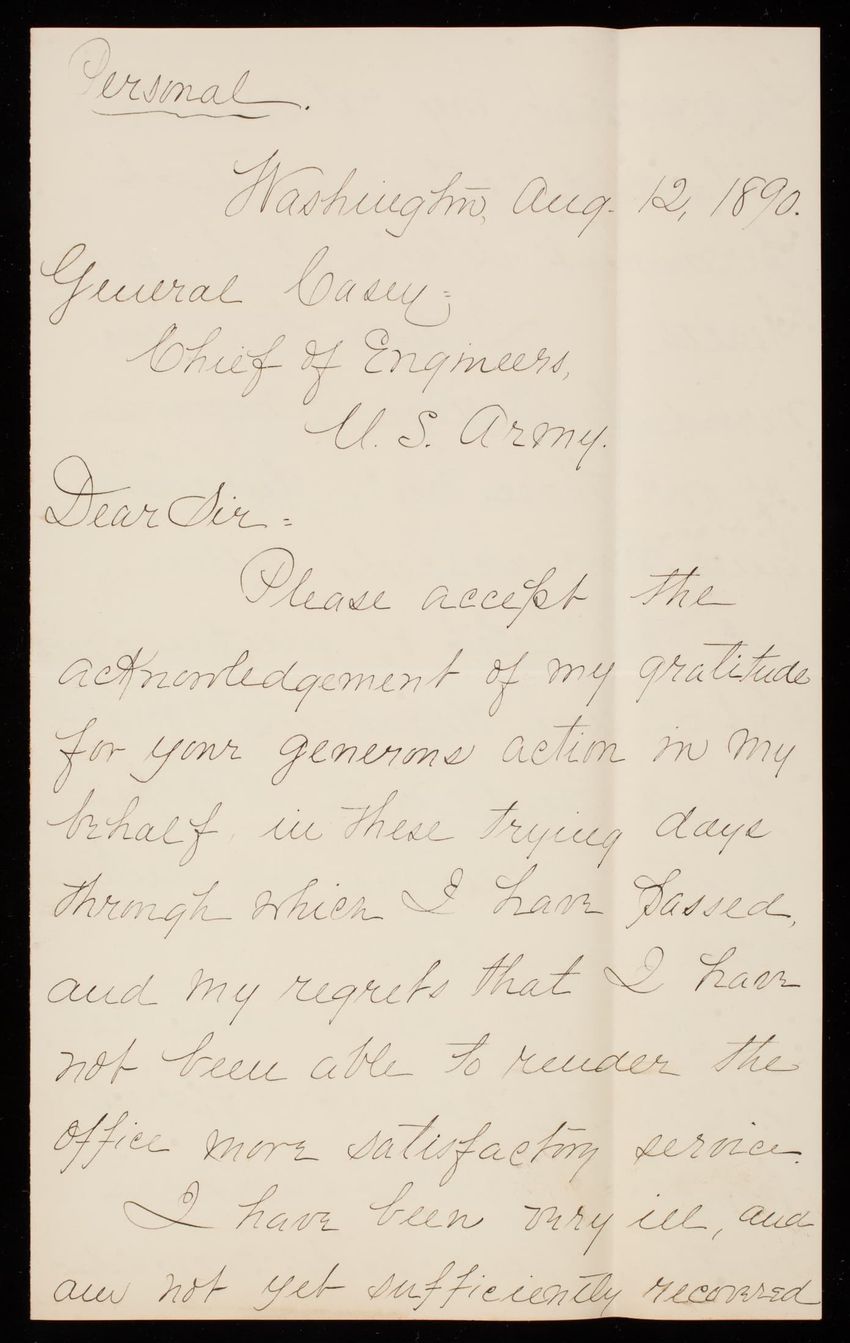 Personal.
Washington, Aug. 12, 1890.
General Casey:
Chief of Engineers,
U. S. Army.
Dear Sir:
Please accept the
acknowledgement of my gratitude
for your generous action in my
behalf, in these trying days
through which I have passed,
and my regrets that I have
not been able to render the
office more satisfactory service.
I have been very ill, and
am not yet sufficiently recovered